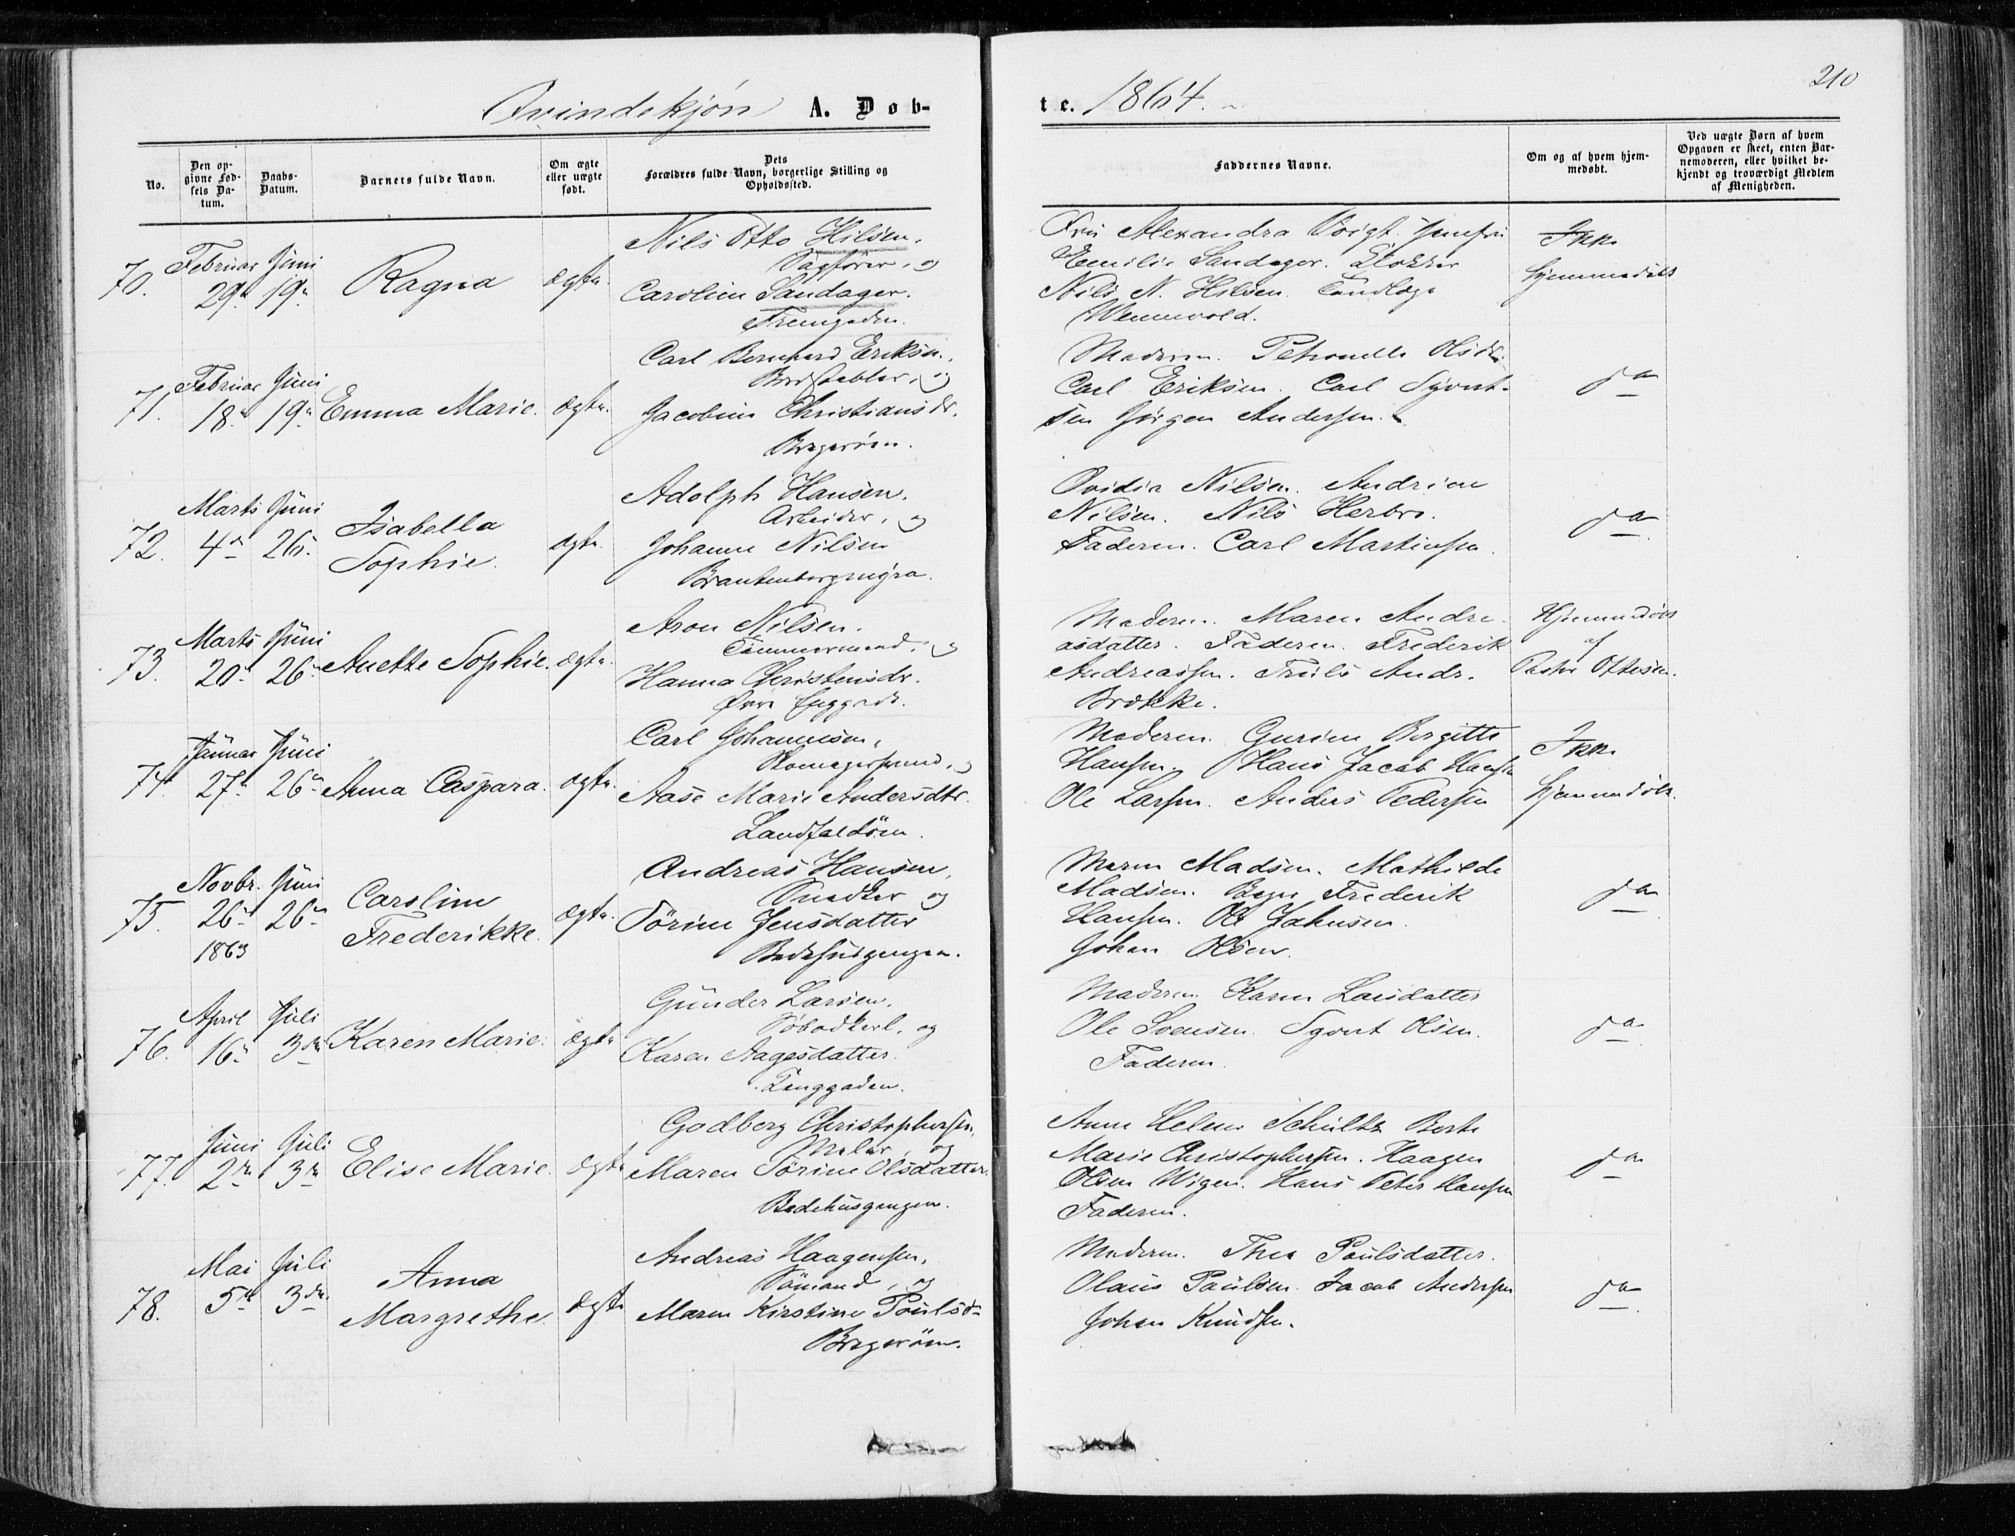 Qvindekjøn A. Døb-
te. 1864.
210
No.
Den op-
givne Fød-
sels Da-
tum.
Daabs-
Datum.
Barnets fulde Navn.
Om ægte
eller uægte
født.
Dets
Forældres fulde Navn, borgerlige Stilling og
Opholdssted.
Faddernes Navne.
Om og af hvem hjem-
medøbt.
Ved uægte Børn af hvem
Opgaven er skeet, enten Bar-
nemoderen, eller hvilket be-
kjendt og troværdigt Medlem
af Menigheden.
70.
Februar
29de
Juni
19de
Ragna
ægte
Nils Otto Hilsen,
Sagfører, og
Caroline Sandager.
Fremgaden.
Fru Alexandra Voigt. Jomfru
Emilie Sandager.
Nils N. Hilsen. Tandlæge
Wennevold.
Ikke
hjemmedøbt
71.
Februar
18de
Juni
19de
Emma Marie.
ægte
Carl Bernhard Eriksen,
Bordstabler, og
Jacobine Christiansdr.
Bragerøen.
Moderen. Petronelle Olsdr.
Carl Eriksen. Carl Syvert-
sen Jørgen Andersen.
do
72.
Marts
4de
Juni
26de
Isabella
Sophie.
ægte
Adolph Hansen.
Arbeider, og
Johanne Nilsen
Brantenborgmyra.
Ovidia Nilsen. Andrine
Nilsen. Nils Herbro.
Faderen. Carl Martinsen.
do
73.
Marts
20de
Juni
26de
Anette Sophie.
ægte
Aron Nilsen.
Tømmermand, og
Hanna Christensdr.
Øvre Enggade.
Moderen. Maren Andre-
asdatter. Faderen. Frederik
Andreassen. Truls Andr.
Brække.
Hjemmedøbt
af
Pastor Ottesen.
74
Januar
27de
Juni
26de
Anna Caspara.
ægte
Carl Johannesen,
og
Aase Marie Andersdtr.
Landfaldøen.
Moderen. Gurine Birgitte
Hansen. Hans Jacob Hansen
Ole Larsen. Anders Pedersen
Ikke
hjemmedøbt.
75.
Novbr.
26de
1863
Juni
26de
Caroline
Frederikke.
ægte
Andreas Hansen,
Snedker og
Sørine Jensdatter
Badehusgangen.
Maren Madsen. Mathilde
Madsen. Frederik
Hansen. Ole Jahnsen.
Johan Olsen.
do
76.
April
16de
Juli
3die
Karen Marie.
ægte
Gunder Larsen,
og
Karen Aagesdatter.
Tanggaden.
Moderen Karen Larsdatter
Ole Svensen. Syvert Olsen.
Faderen.
do
77.
Juni
2den
Juli
3die
Elise Marie.
ægte
Godberg Christophersen,
Maler, og
Maren Sørine Olsdatter.
Badehusgangen.
Anne Helene Schultz Berte
Marie Christophersen. Haagen
Olsen Wigen. Hans Peter Hansen
Faderen.
do
78.
Mai
5te
Juli
3die
Anna
Margrethe.
ægte
Andreas Haagensen,
Sømand, og
Maren Kirstine Poulsdr
Bragerøen.
Moderen. Thea Poulsdatter.
Olaus Paulsen. Jacob Andersen
Johan Knudsen.
do